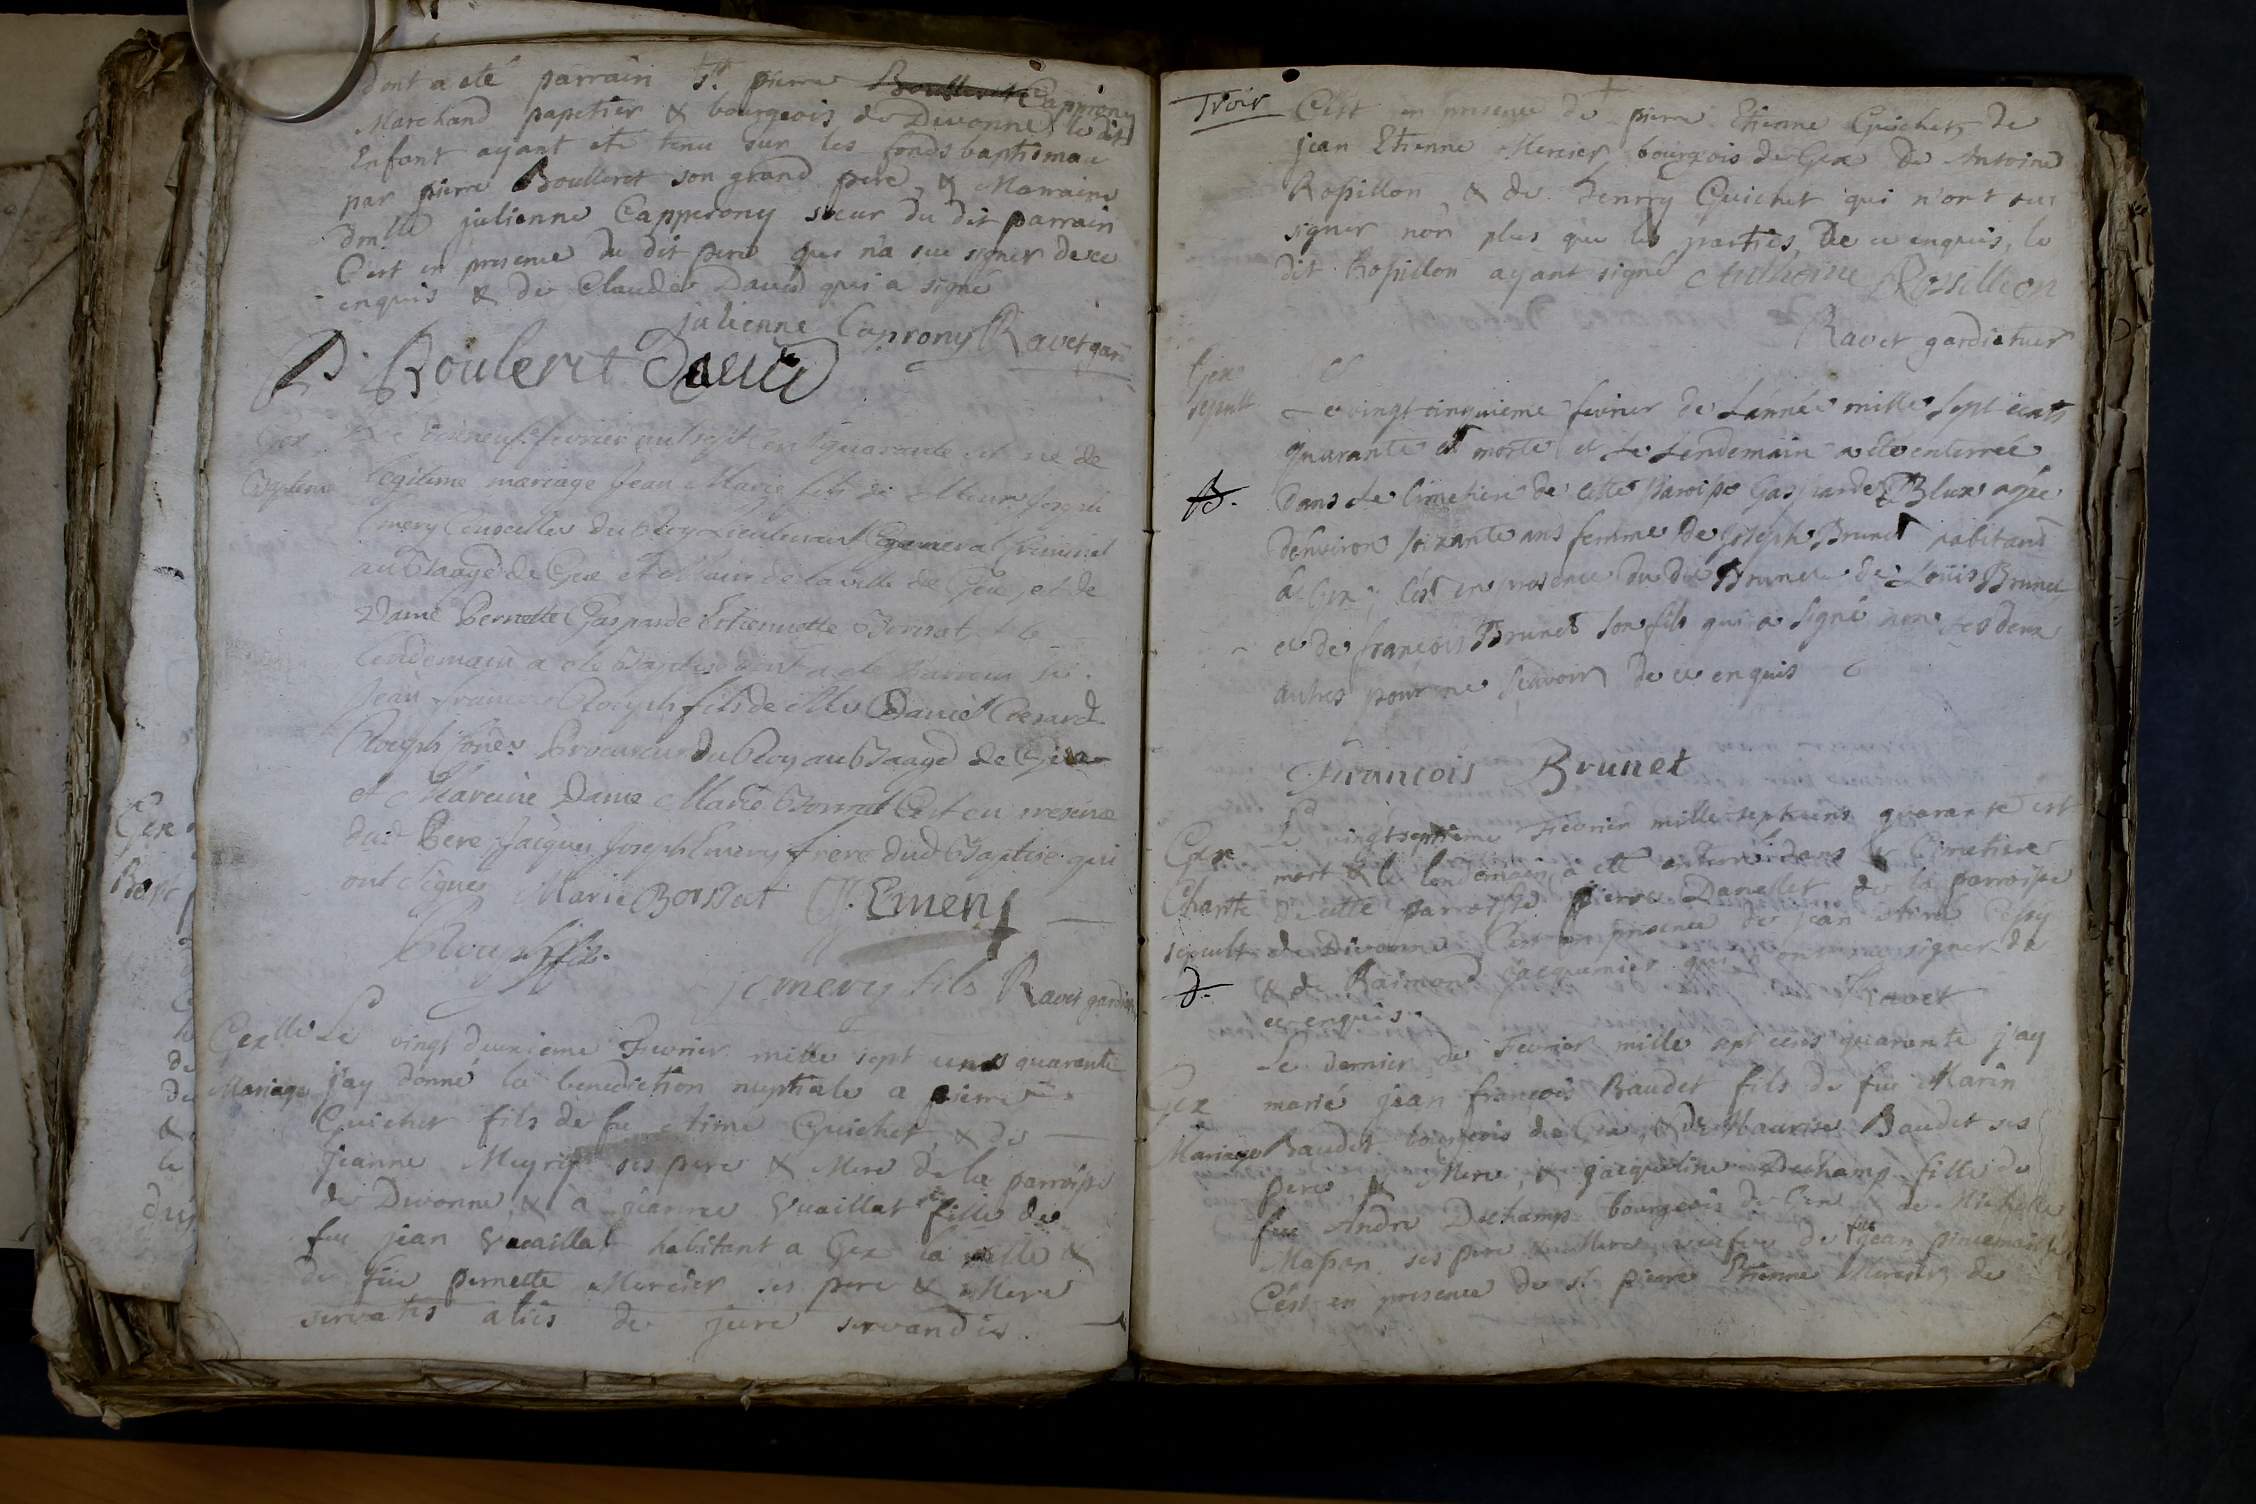 dont a eté parrain Sr. pierre Boulleret Capprony
Marchand papetier & bourgeois de Divonne le dit
Enfant ayant eté tenu sur les fonds baptismau
par pierre Boulleret son grand pere, & Marraine
dmlle julienne Capperony sœur du dit parrain
C'est en presence du dit pere qui n'a sue signer de ce
enquis & de Claude David qui a signé
julienne Caprony Ravet gard
P. Bouleret David
Gex
Le dixneuf fevrier mil sept cent quarante est né de
Baptême
legitime mariage Jean Marie fils de Joseph
Emery Conseiller du Roy Lieutenant General Criminel
au Bââge de Gex et Maire de la ville de Gex, et de
Dame Pernette Gasparde Estiennette Borssat, et le
lendemain a eté Baptisé dont a eté Parrain Sr.
Jean francois Rouph fils de Me Daniel
Rouph Procureur du Roy au Bââge de Gex
et Mareine Dame Marie Borssat C'est en presence
dud Pere Jacques Joseph Emery frere dud Baptisé qui
ont signés Marie Borssat J. Emery
Rouph fils.
Emery fils Ravet gardia
Gex lle
Le vingt deuxieme Fevrier mille sept cents quarante
Mariage
j'ay donné la benediction nuptiale a pierre
Guichet fils de feu Aimé Guichet, & de
jeanne Meyrit ses pere & Mere de la parroisse
de Divonne, & a jeanne Vuaillat fille de
feu jean Vuaillat habitant a Gex la ville &
de füe pernette Mercier ses pere & Mere
servatis aliis de jure servandis.
Gex
Bapt
Trois
C'est en presence de pierre Etienne Guichet, de
jean Etienne Mercier, bourgeois de Gex de Antoine
Rossillon, & de henrry Guichet qui n'ont sue
signer non plus que les parties, De ce enquis, le
dit Rossillon ayant signé Anthoine Rossillion
Ravet gardiateur
Gex
sepult
Le vingt cinquieme fevrier de L'année mille sept cents
quarante est morte et Le Lendemain a été enterrée
B.
Dans Le Cimetiere de cette Paroisse Gasparde Blux agée
d'environ soixante ans femme de Joseph Brunet habitant
à Gex; C'est en presence du dit Brunet de Loüis Brunet
et de francois Brunet son fils qui a signé non Les deux
autres pour ne sçavoir de ce enquis
Francois Brunet
Le vingtseptieme Fevrier mille septcens quarante est
Gex
mort & le lendemain a eté enterré dans le Cimetiere
Chante
de cette parroisse pierre Danellet de la parroisse
sepult
de Divonne C'est en presence de jean Aimé
D.
& de Raimond jacquemier qui n'ont sue signer de
ce enquis. Ravet
Le dernier de Fevrier mille sept cens quarante j'ay
Gex
marié jean francois Baudet fils de feu Marin
Mariage
Baudet bourgeois de Gex, & de Maurise Baudet ses
pere & Mere, & jacqueline Deschamp fille de
feu Andre Deschamp bourgeois de Gex & de Michelle
Masson ses pere & Mere, veufue de feu jean
C'est en presence de Sr. pierre Etienne Mercier, de